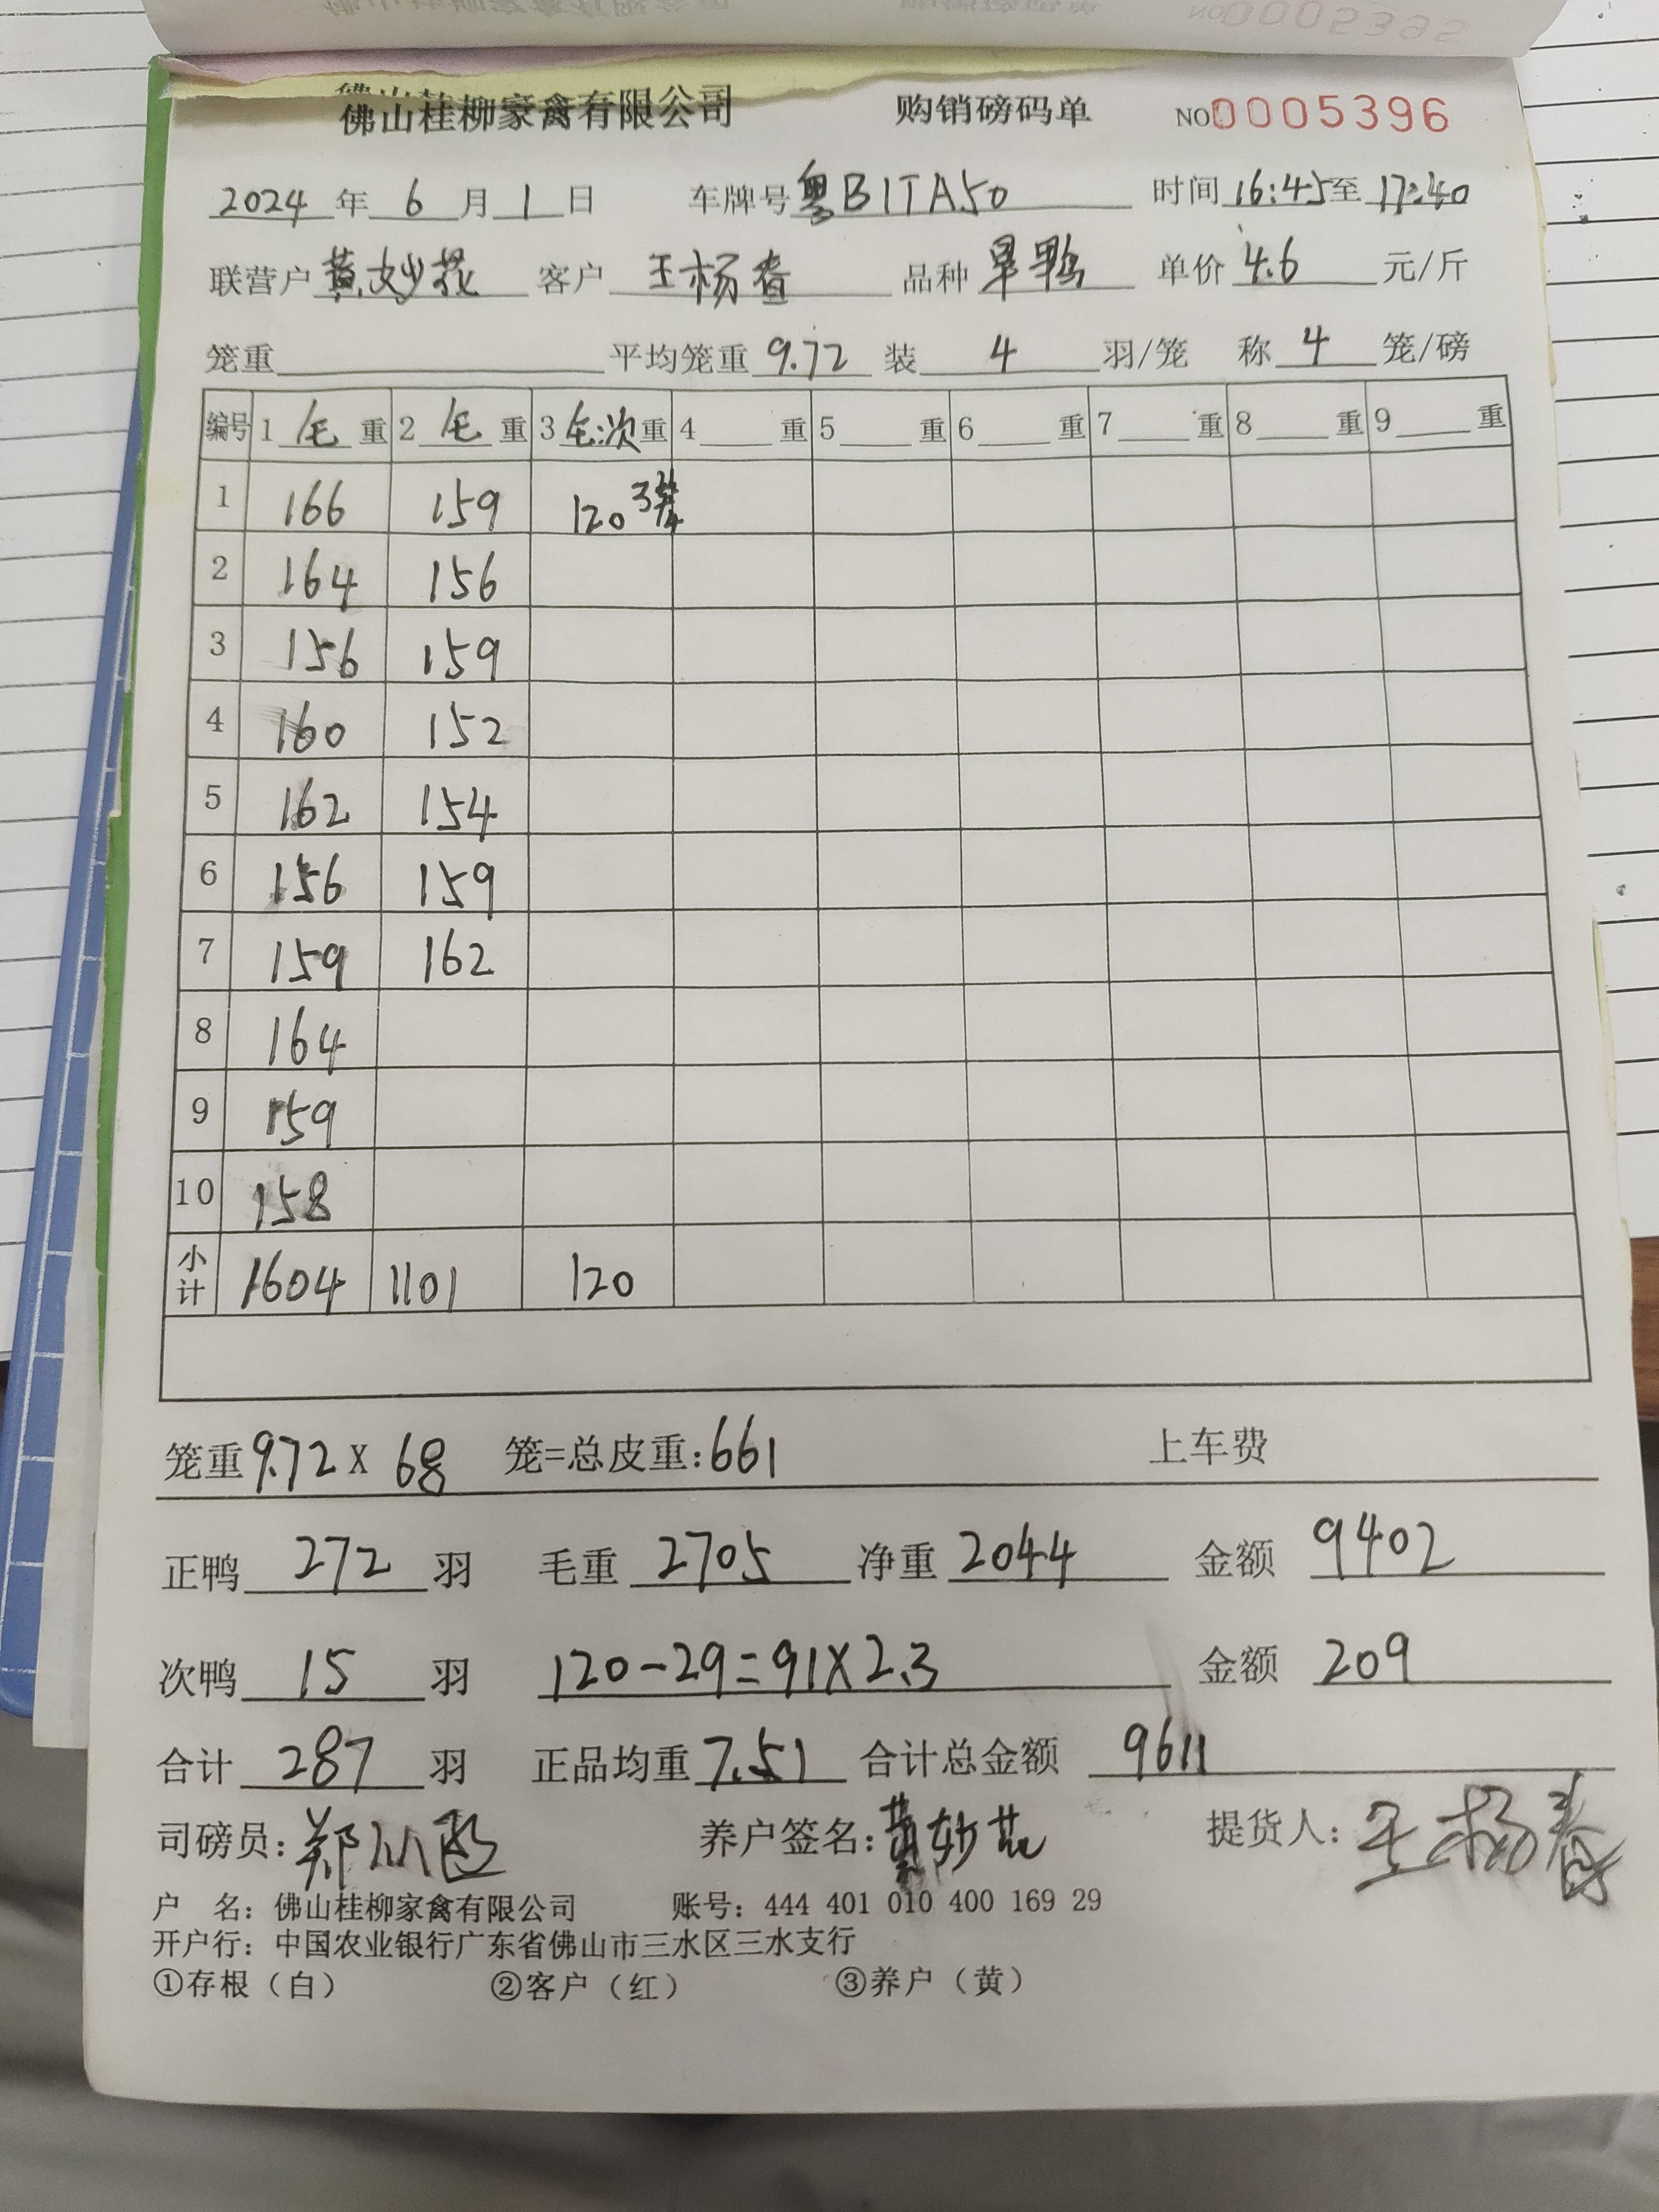 佛山桂柳家禽有限公司 购销磅码单 NO 0005396
2024年6月1日 车牌号粤B1TA50 时间16:45至17:40
联营户黄妙花 客户王杨春 品种旱鸭 单价4.6元/斤
笼重 平均笼重9.72 装4羽/笼 称4笼/磅
编号 1毛重 2毛重 3毛:次重 4重 5重 6重 7重 8重 9重
1 166 159 120 3
2 164 156
3 156 159
4 160 152
5 162 154
6 156 159
7 159 162
8 164
9 159
10 158
小计 1604 1101 120
笼重9.72X68 笼=总皮重:661 上车费
正鸭272羽 毛重2705 净重2044 金额9402
次鸭15羽 120-29=91X2.3 金额209
合计287羽 正品均重7.51 合计总金额9611
司磅员:郑 养户签名:黄妙花 提货人:王杨春
户 名：佛山桂柳家禽有限公司 账号：444 401 010 400 169 29
开户行：中国农业银行广东省佛山市三水区三水支行
①存根（白） ②客户（红） ③养户（黄）